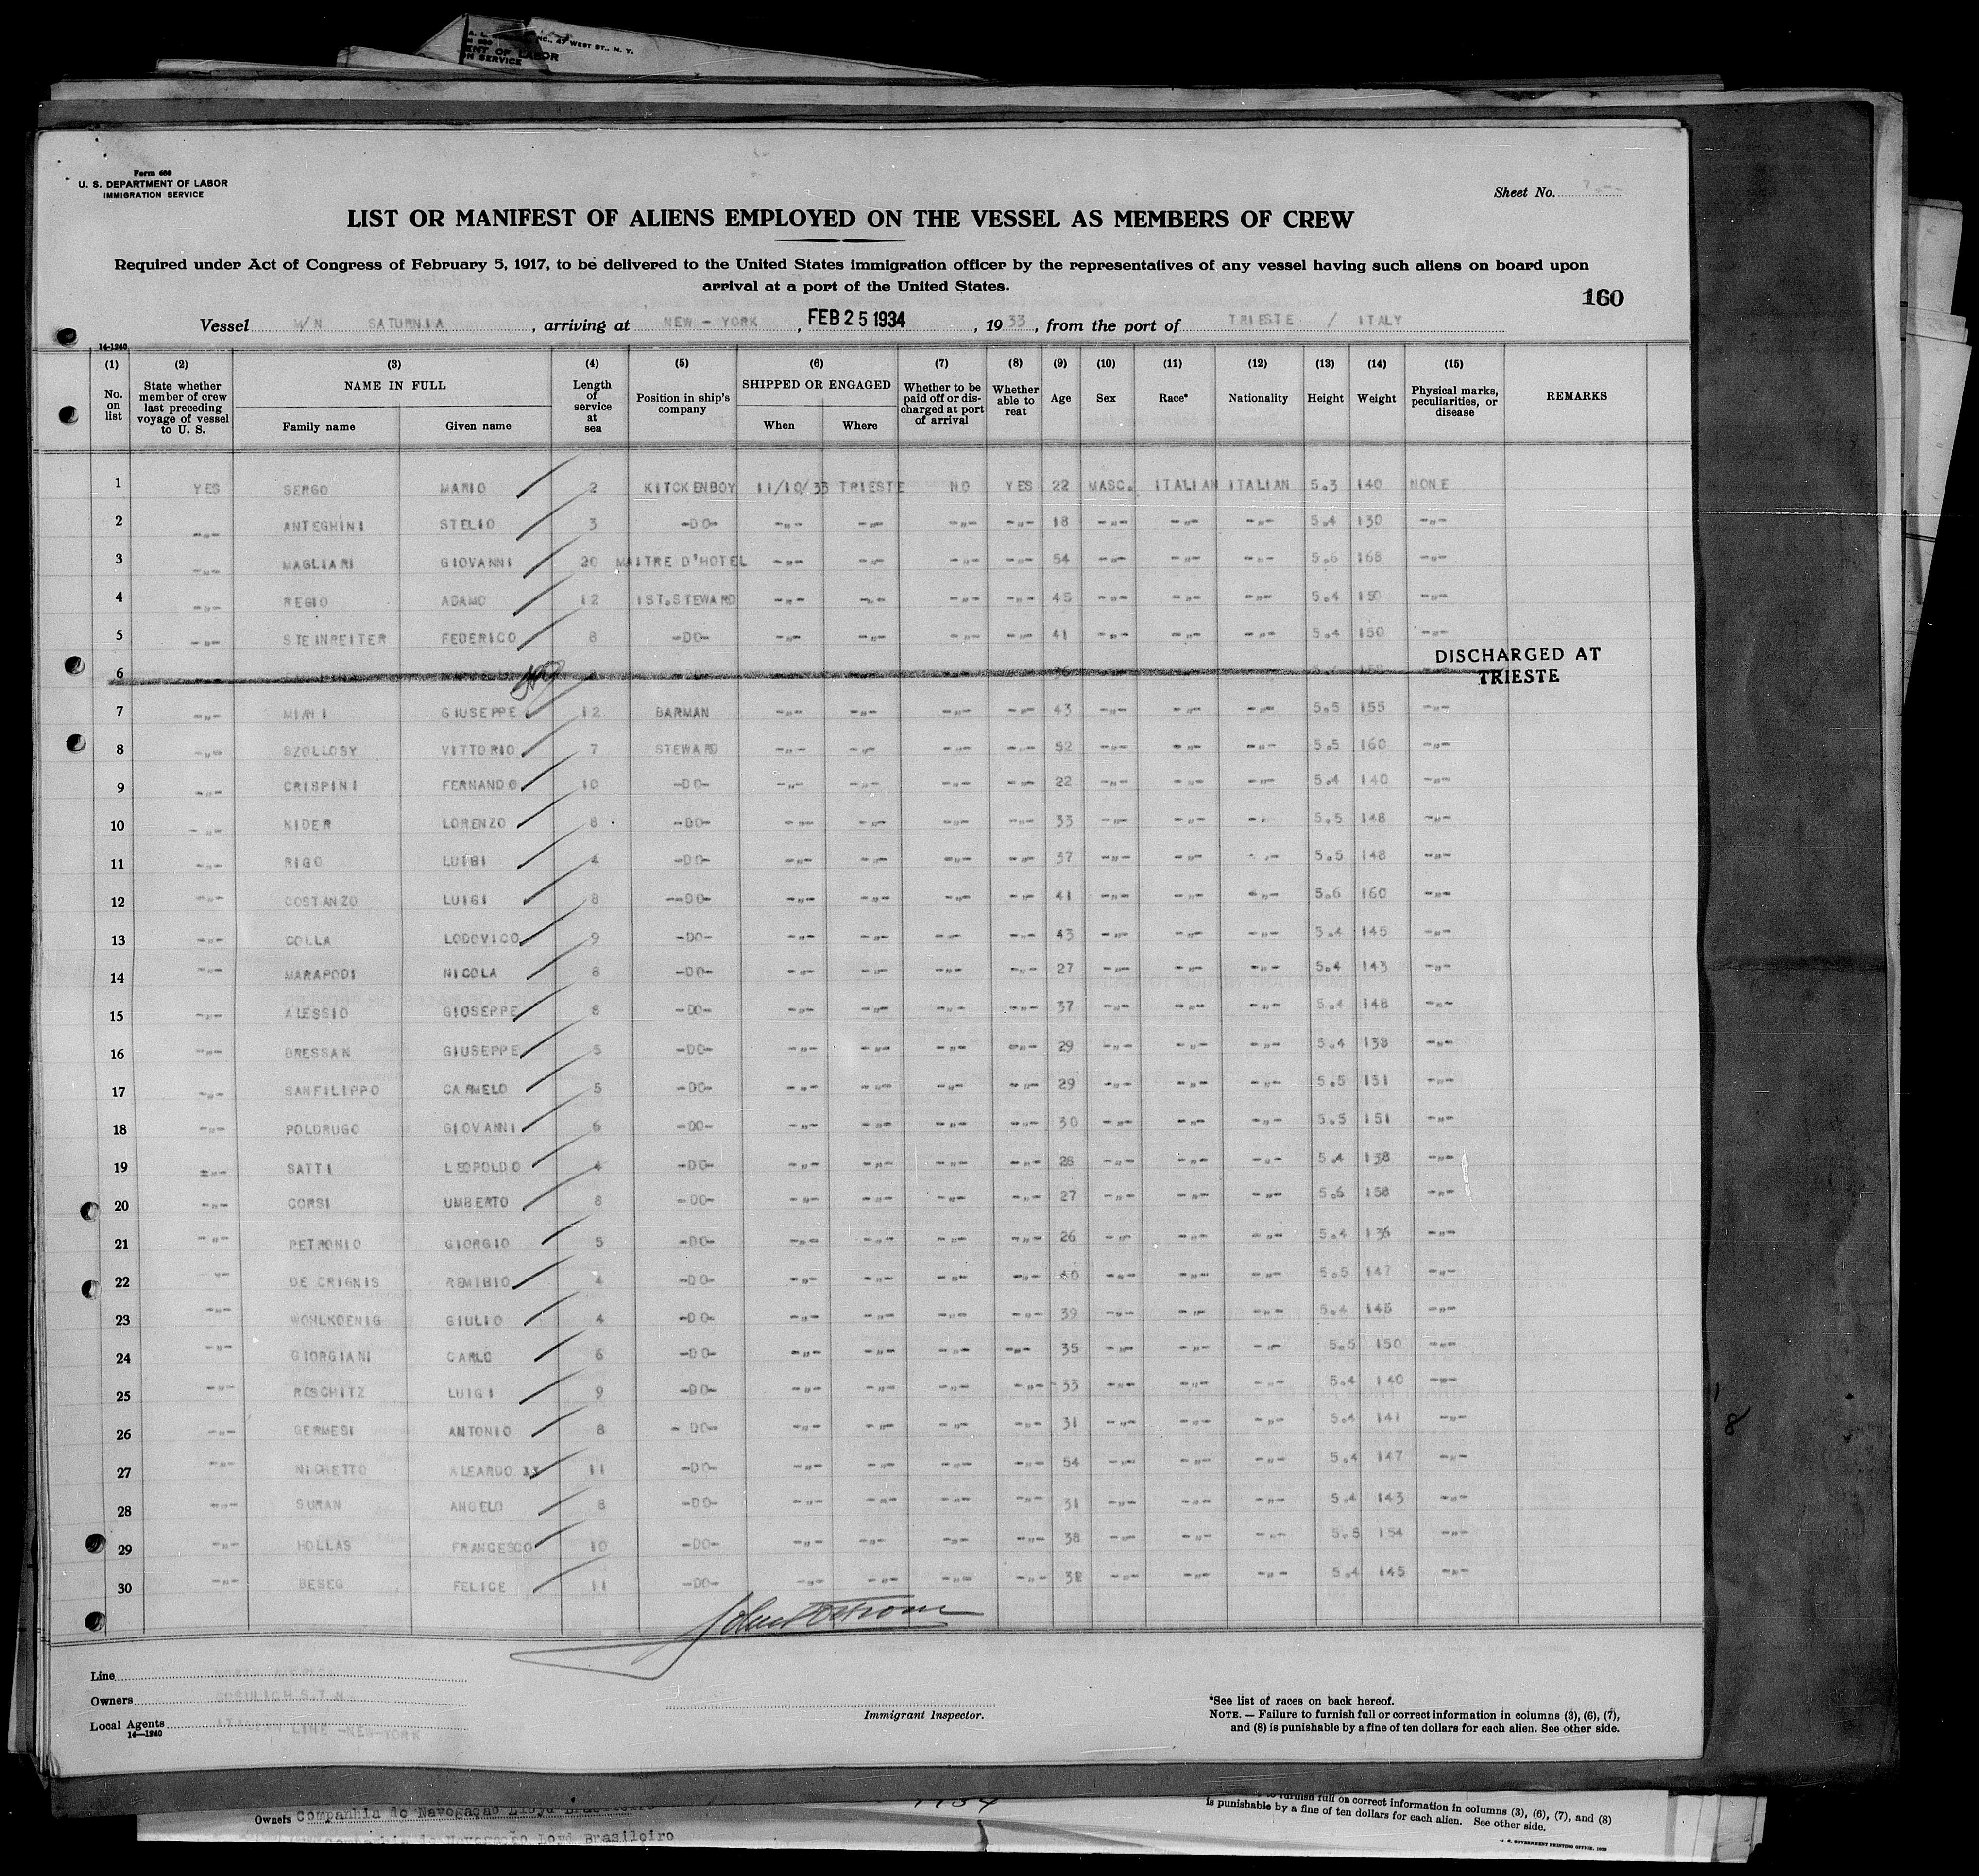 A. L. INC., 47 WEST ST., N. Y.
ENT OF LABOR
ON SERVICE
Form 680
U. S. DEPARTMENT OF LABOR
IMMIGRATION SERVICE
Sheet No.
LIST OR MANIFEST OF ALIENS EMPLOYED ON THE VESSEL AS MEMBERS OF CREW
Required under Act of Congress of February 5, 1917, to be delivered to the United States immigration officer by the representatives of any vessel having such aliens on board upon
arrival at a port of the United States.
160
Vessel M/N SATURNIA, arriving at NEW - YORK, FEB 25 1934, 1933, from the port of TRIESTE / ITALY
14-1240
(1) (2) (3) (4) (5) (6) (7) (8) (9) (10) (11) (12) (13) (14) (15)
No. on list | State whether member of crew last preceding voyage of vessel to U. S. | NAME IN FULL Family name Given name | Length of service at sea | Position in ship's company | SHIPPED OR ENGAGED When Where | Whether to be paid off or discharged at port of arrival | Whether able to reat | Age | Sex | Race* | Nationality | Height | Weight | Physical marks, peculiarities, or disease | REMARKS
1 YES SERGO MARIO 2 KITCKENBOY 11/10/33 TRIESTE NO YES 22 MASC. ITALIAN ITALIAN 5.3 140 NONE
2 -"- ANTEGHINI STELIO 3 -DO- -"- -"- -"- -"- 18 -"- -"- -"- 5.4 130 -"-
3 -"- MAGLIARI GIOVANNI 20 MAITRE D'HOTEL -"- -"- -"- -"- 54 -"- -"- -"- 5.6 168 -"-
4 -"- REGIO ADAMO 12 1ST.STEWARD -"- -"- -"- -"- 45 -"- -"- -"- 5.4 150 -"-
5 -"- STEINREITER FEDERICO 8 -DO- -"- -"- -"- -"- 41 -"- -"- -"- 5.4 150 -"-
6 DISCHARGED AT
TRIESTE
7 -"- MIANI GIUSEPPE 12 BARMAN -"- -"- -"- -"- 43 -"- -"- -"- 5.5 155 -"-
8 -"- SZOLLOSY VITTORIO 7 STEWARD -"- -"- -"- -"- 52 -"- -"- -"- 5.5 160 -"-
9 -"- CRISPINI FERNANDO 10 -DO- -"- -"- -"- -"- 22 -"- -"- -"- 5.4 140 -"-
10 -"- NIDER LORENZO 8 -DO- -"- -"- -"- -"- 33 -"- -"- -"- 5.5 148 -"-
11 -"- RIGO LUIGI 4 -DO- -"- -"- -"- -"- 37 -"- -"- -"- 5.5 148 -"-
12 -"- COSTANZO LUIGI 8 --DO- -"- -"- -"- -"- 41 -"- -"- -"- 5.6 160 -"-
13 -"- COLLA LODOVICO 9 -DO- -"- -"- -"- -"- 43 -"- -"- -"- 5.4 145 -"-
14 -"- MARAPODI NICOLA 8 -DO- -"- -"- -"- -"- 27 -"- -"- -"- 5.4 143 -"-
15 -"- ALESSIO GIOSEPPE 8 -DO- -"- -"- -"- -"- 37 -"- -"- -"- 5.4 148 -"-
16 -"- BRESSAN GIUSEPPE 5 -DO- -"- -"- -"- -"- 29 -"- -"- -"- 5.4 138 -"-
17 -"- SANFILIPPO CARMELO 5 -DO- -"- -"- -"- -"- 29 -"- -"- -"- 5.5 151 -"-
18 -"- POLDRUGO GIOVANNI 6 -DO- -"- -"- -"- -"- 30 -"- -"- -"- 5.5 151 -"-
19 -"- SATTI LEOPOLDO 4 -DO- -"- -"- -"- -"- 28 -"- -"- -"- 5.4 138 -"-
20 -"- CORSI UMBERTO 8 -DO- -"- -"- -"- -"- 27 -"- -"- -"- 5.6 158 -"-
21 -"- PETRONIO GIORGIO 5 -DO- -"- -"- -"- -"- 26 -"- -"- -"- 5.4 136 -"-
22 -"- DE CRIGNIS REMIGIO 4 -DO- -"- -"- -"- -"- 40 -"- -"- -"- 5.5 147 -"-
23 -"- WOHLKOENIG GIULIO 4 -DO- -"- -"- -"- -"- 39 -"- -"- -"- 5.4 145 -"-
24 -"- GIORGIANI CARLO 6 -DO- -"- -"- -"- -"- 35 -"- -"- -"- 5.5 150 -"-
25 -"- ROSCHITZ LUIGI 9 -DO- -"- -"- -"- -"- 33 -"- -"- -"- 5.4 140 -"-
26 -"- GERMESI ANTONIO 8 -DO- -"- -"- -"- -"- 31 -"- -"- -"- 5.4 141 -"-
27 -"- NICHETTO ALEARDO 11 -DO- -"- -"- -"- -"- 54 -"- -"- -"- 5.4 147 -"-
28 -"- SURAN ANGELO 8 -DO- -"- -"- -"- -"- 31 -"- -"- -"- 5.4 143 -"-
29 -"- HOLLAS FRANCESCO 10 -DO- -"- -"- -"- -"- 38 -"- -"- -"- 5.5 154 -"-
30 -"- BESEG FELICE 11 -DO- -"- -"- -"- -"- 32 -"- -"- -"- 5.4 145 -"-
Line
Owners COSULICH S.T.N.
Local Agents ITALIAN LINE -NEW-YORK
14-1240
Immigrant Inspector.
*See list of races on back hereof.
NOTE. — Failure to furnish full or correct information in columns (3), (6), (7),
and (8) is punishable by a fine of ten dollars for each alien. See other side.
Owners Companhia de Navegação Lloyd Brasileiro
to furnish full or correct information in columns (3), (6), (7), and (8)
is punishable by a fine of ten dollars for each alien. See other side.
GOVERNMENT PRINTING OFFICE